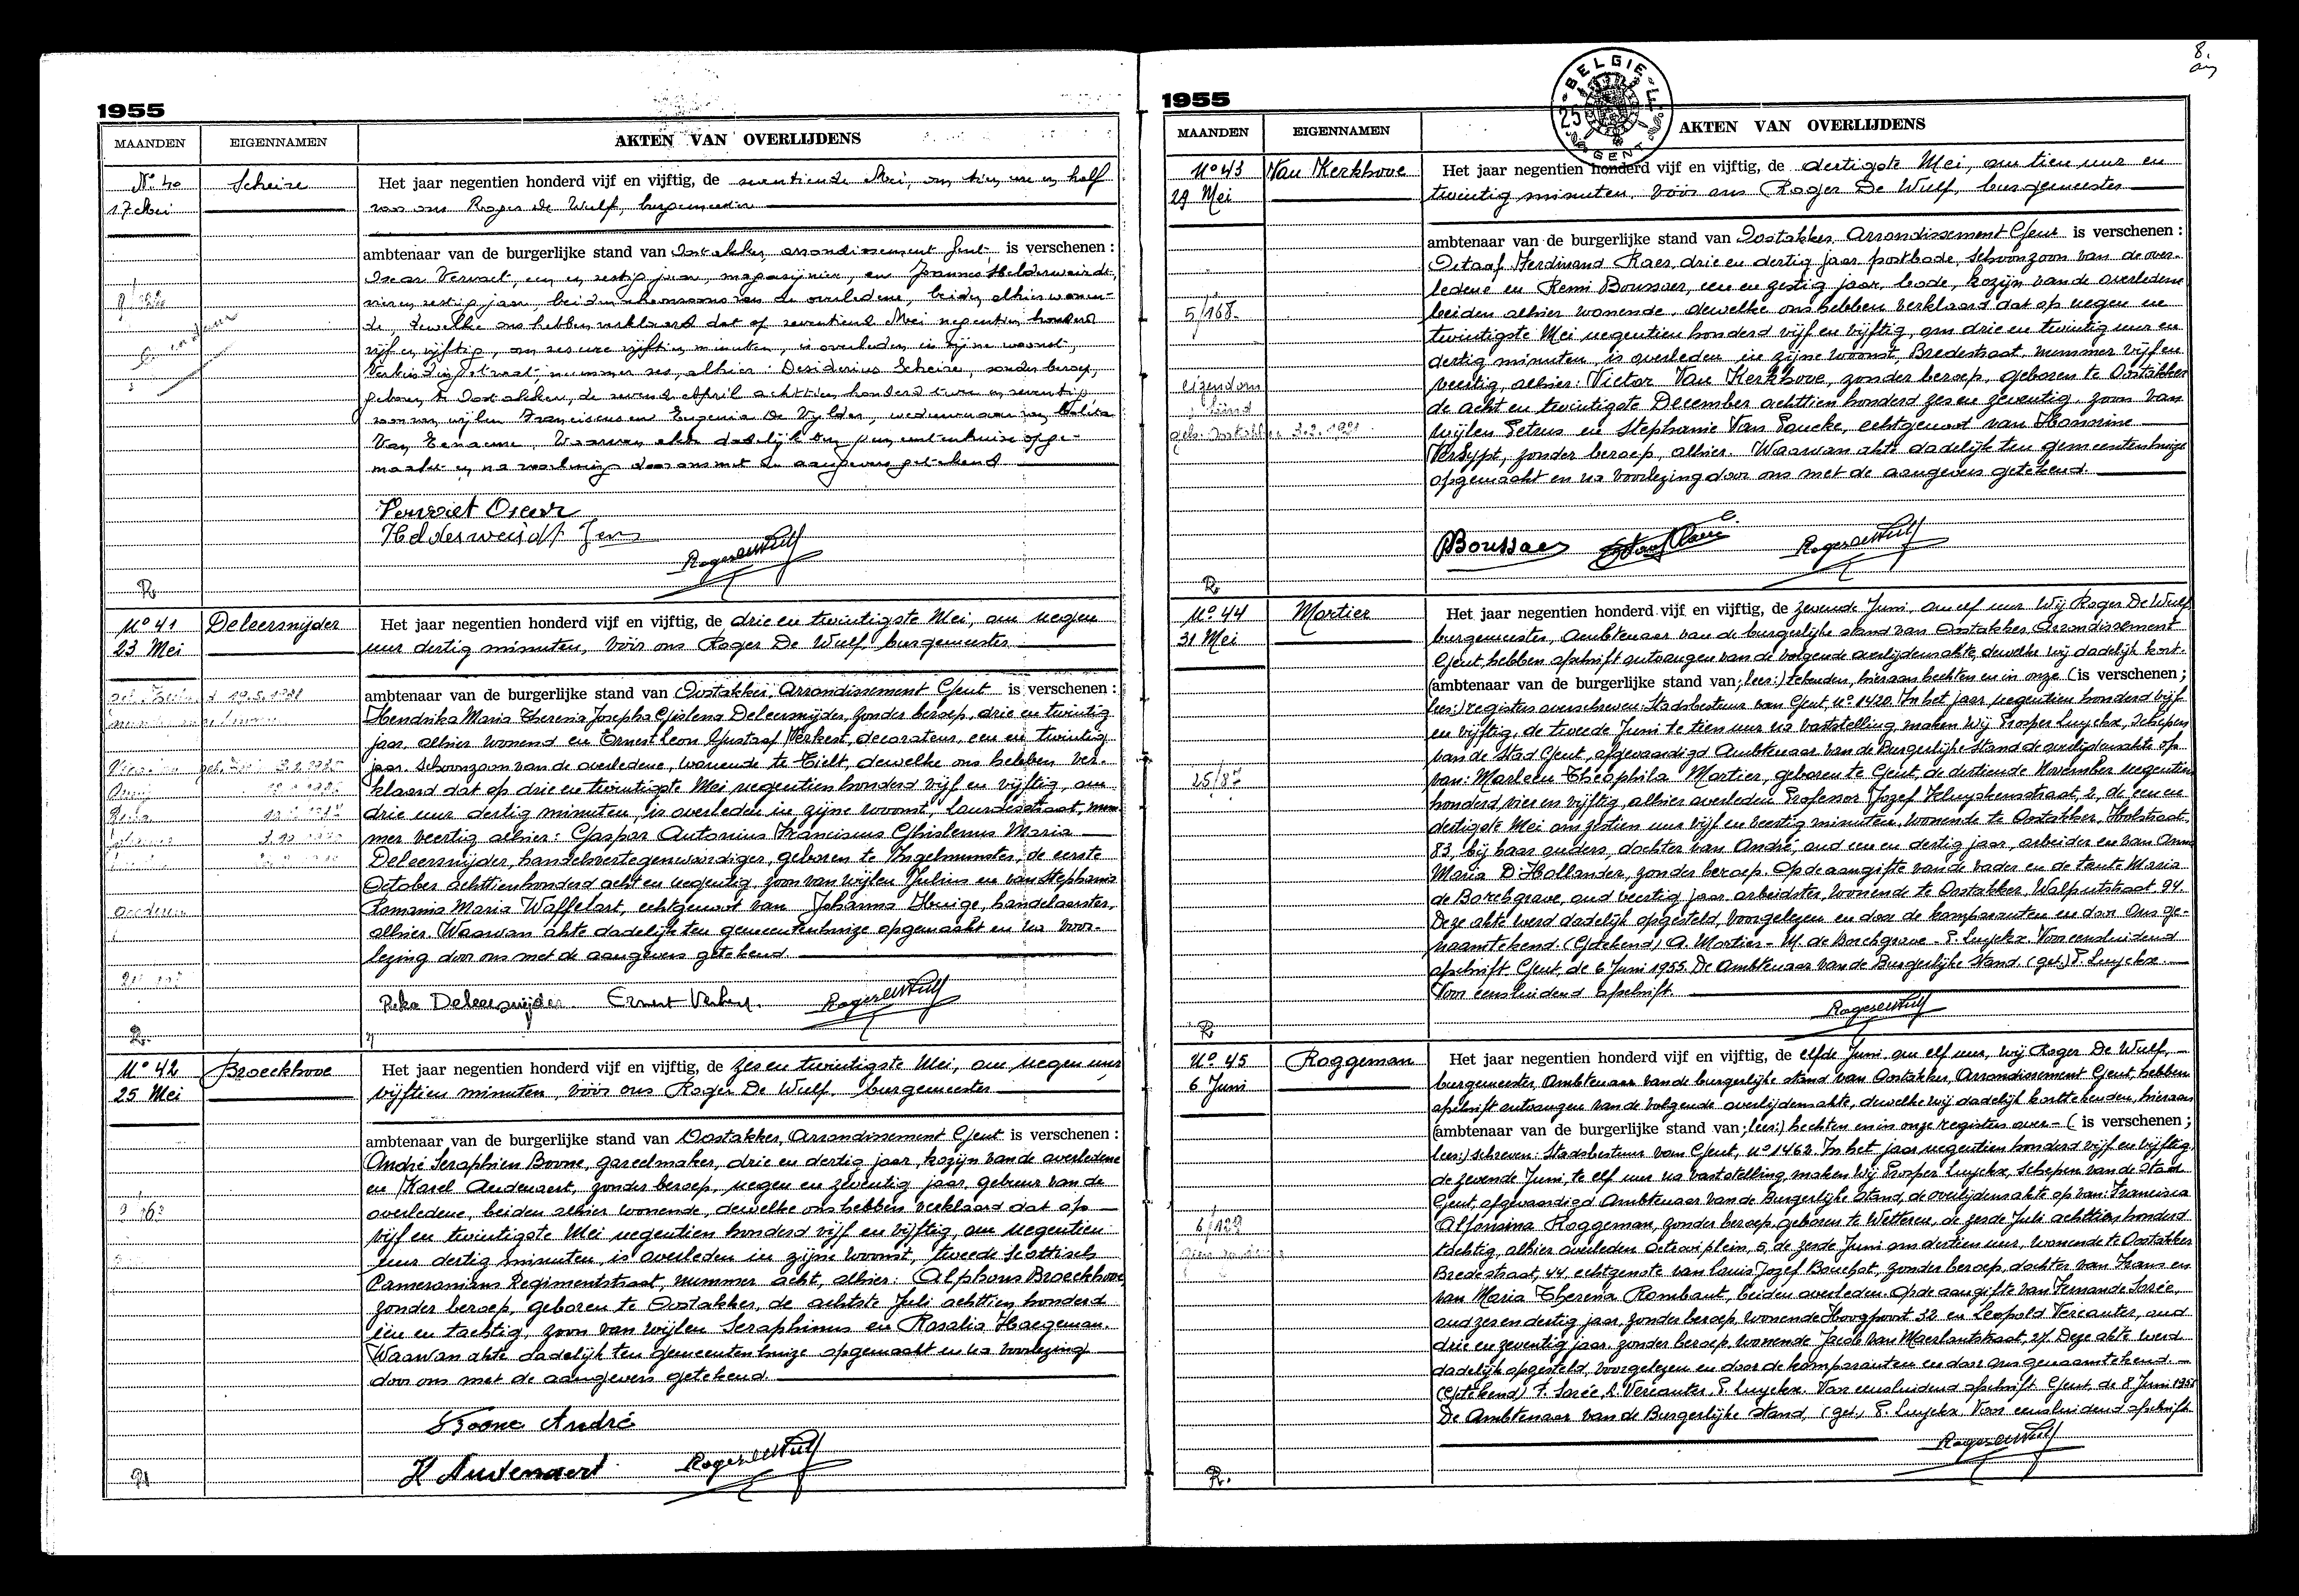 1955
MAANDEN EIGENNAMEN AKTEN VAN OVERLIJDENS
No 40 Scheire Het jaar negentien honderd vijf en vijftig, de zeventiende Mei, om tien ure en half
17 Mei voor ons Roger De Wulf, burgemeester
ambtenaar van de burgerlijke stand van Oostakker, arrondissement Gent, is verschenen :
Oscar Vervaet, een en zestig jaar, magazijnier, en Joannes Helderweirdt,
vier en zestig jaar, beiden schoonzoons van de overledene, beiden alhier wonen-
de, dewelke ons hebben verklaard dat op zeventiende Mei negentien honderd
vijf en vijftig, om zes ure vijftien minuten, is overleden in zijne woonst,
nummer zes, alhier: Desiderius Scheire, zonder beroep,
geboren te Oostakker, de zevende April achttien honderd twee en zeventig,
zoon van wijlen Franciscus en Eugenia De Vylder, weduwnaar van
Van Eenaeme. Waarvan akte dadelijk ten gemeentenhuize opge-
maakt en na voorlezing door ons met de aangevers getekend
Vervaet Oscar
Helderweirdt Jan
Roger De Wulf
R.
No 41 Deleersnijder Het jaar negentien honderd vijf en vijftig, de drie en twintigste Mei, om negen
23 Mei uur dertig minuten, vóór ons Roger De Wulf, burgemeester
ambtenaar van de burgerlijke stand van Oostakker, Arrondissement Gent is verschenen :
Hendrika Maria Theresia Josepha Gislena Deleersnijder, zonder beroep, drie en twintig
jaar, alhier wonend en Ernest Leon Gustaaf Verkest, decorateur, een en twintig
jaar, schoonzoon van de overledene, wonende te Tielt, dewelke ons hebben ver-
klaard dat op drie en twintigste Mei negentien honderd vijf en vijftig, om
drie uur dertig minuten, is overleden in zijne woonst, Lourdesstraat, num-
mer veertig alhier: Gaspar Antonius Franciscus Ghislenus Maria
Deleersnijder, handelsvertegenwoordiger, geboren te Ingelmunster, de eerste
October achttienhonderd acht en negentig, zoon van wijlen Julius en van Stephania
Romania Maria Waffelart, echtgenoot van Johanna Huige, handelaarster,
alhier. Waarvan akte dadelijk ten gemeentenhuize opgemaakt en na voor-
lezing door ons met de aangevers getekend.
Rika Deleersnijder. Ernest Verkest. Roger De Wulf
R.
No 42 Broeckhove Het jaar negentien honderd vijf en vijftig, de zes en twintigste Mei, om negen uur
25 Mei vijftien minuten, vóór ons Roger De Wulf, burgemeester
ambtenaar van de burgerlijke stand van Oostakker, Arrondissement Gent is verschenen :
André Seraphien Boone, gareelmaker, drie en dertig jaar, kozijn van de overledene
en Karel Audenaert, zonder beroep, negen en zeventig jaar, gebuur van de
overledene, beiden alhier wonende, dewelke ons hebben verklaard dat op
vijf en twintigste Mei negentien honderd vijf en vijftig, om negentien
uur dertig minuten, is overleden in zijne woonst, tweede Scottisch
Cameronians Regimentstraat, nummer acht, alhier: Alphons Broeckhove,
zonder beroep, geboren te Oostakker, de achtste Juli achttien honderd
één en tachtig, zoon van wijlen Seraphinus en Rosalia Haegeman.
Waarvan akte dadelijk ten gemeentenhuize opgemaakt en na voorlezing
door ons met de aangevers getekend.
Boone André
K Audenaert Roger De Wulf
R
8.
1955
BELGIE GENT 25
MAANDEN EIGENNAMEN AKTEN VAN OVERLIJDENS
No 43 Van Kerkhove Het jaar negentien honderd vijf en vijftig, de dertigste Mei, om tien uur en
29 Mei twintig minuten, vóór ons Roger De Wulf, burgemeester
ambtenaar van de burgerlijke stand van Oostakker Arrondissement Gent is verschenen :
Octaaf Ferdinand Raes, drie en dertig jaar postbode, schoonzoon van de over-
ledene en Remi Boussaer, een en zestig jaar, bode, kozijn van de overledene
beiden alhier wonende, dewelke ons hebben verklaard dat op negen en
5/168
twintigste Mei negentien honderd vijf en vijftig, om drie en twintig uur en
dertig minuten is overleden in zijne woonst, Bredestraat, nummer vijf en
eigendom
veertig, alhier: Victor Van Kerkhove, zonder beroep, geboren te Oostakker
de acht en twintigste December achttien honderd zes en zeventig, zoon van
wijlen Petrus en Stephanie Van Paucke, echtgenoot van Honorine
Versypt, zonder beroep, alhier. Waarvan akte dadelijk ten gemeentenhuize
opgemaakt en na voorlezing door ons met de aangevers getekend.
Boussaer Roger De Wulf
R.
No 44 Mortier Het jaar negentien honderd vijf en vijftig, de zevende Juni, om elf uur Wij Roger De Wulf
31 Mei burgemeester, Ambtenaar van de burgerlijke stand van Oostakker Arrondissement
Gent, hebben afschrift ontvangen van de volgende overlijdensakte, dewelke wij dadelijk kort-
(ambtenaar van de burgerlijke stand van; lees:) tekenden, hieraan hechten en in onze (is verschenen ;
lees:) registers overschreven: Stadsbestuur van Gent, No 1420. In het jaar negentien honderd vijf
en vijftig, de tweede Juni te tien uur na vaststelling, maken Wij Prosper Luyckx, Schepen
van de Stad Gent, afgevaardigd Ambtenaar van de Burgerlijke Stand de overlijdensakte op
van: Marleen Theophila Mortier, geboren te Gent, de dertiende November negentien
honderd vier en vijftig, alhier overleden Professor Jozef Kluyskensstraat, 2, de een en
dertigste Mei om zestien uur vijf en veertig minuten, wonende te Oostakker, Holstraat,
83, bij haar ouders, dochter van André, oud een en dertig jaar, arbeider en van Anna
Maria D'Hollander, zonder beroep. Op de aangifte van de vader en de tante Maria
de Borchgrave, oud veertig jaar arbeidster, wonende te Oostakker, Walputstraat 94.
Deze akte werd dadelijk opgesteld, voorgelezen en door de komparanten en door Ons ge-
naamtekend. (Getekend) A. Mortier - M. de Borchgrave - P. Luyckx. Voor eensluidend
afschrift Gent, de 6 Juni 1955. De Ambtenaar van de Burgerlijke Stand, (get.) P. Luyckx.
Voor eensluidend afschrift.
Roger De Wulf
R
No 45 Roggeman Het jaar negentien honderd vijf en vijftig, de elfde Juni, om elf uur, wij Roger De Wulf,
6 Juni burgemeester, Ambtenaar van de burgerlijke stand van Oostakker, Arrondissement Gent, hebben
afschrift ontvangen van de volgende overlijdensakte, dewelke wij dadelijk korttekenden, hieraan
(ambtenaar van de burgerlijke stand van; lees:) hechten en in onze registers over- ( is verschenen ;
lees:) schreven: Stadsbestuur van Gent, No 1462. In het jaar negentien honderd vijf en vijftig,
de zevende Juni, te elf uur na vaststelling, maken Wij Prosper Luyckx, Schepen van de Stad
Gent, afgevaardigd Ambtenaar van de Burgerlijke Stand, de overlijdensakte op van: Francisca
Alfonsina Roggeman, zonder beroep, geboren te Wetteren, de zesde Juli achttien honderd
tachtig, alhier overleden Octrooiplein, 5, de zesde Juni om dertien uur, wonende te Oostakker
Bredestraat, 44, echtgenote van Louis Jozef Bauchot, zonder beroep, dochter van Frans en
van Maria Theresia Rombaut, beiden overleden. Op de aangifte van Fernande Sorée,
oud zes en dertig jaar, zonder beroep, wonende Hoogpoort 32 en Leopold Vercauter, oud
drie en zeventig jaar, zonder beroep, wonende Jacob van Maerlantstraat, 27. Deze akte werd
dadelijk opgesteld, voorgelezen en door de komparanten en door Ons genaamtekend.
(Getekend) F. Sorée, L. Vercauter P. Luyckx. Voor eensluidend afschrift Gent, de 8 Juni 1955
De Ambtenaar van de Burgerlijke Stand, (get.) P. Luyckx. Voor eensluidend afschrift.
Roger De Wulf
R.